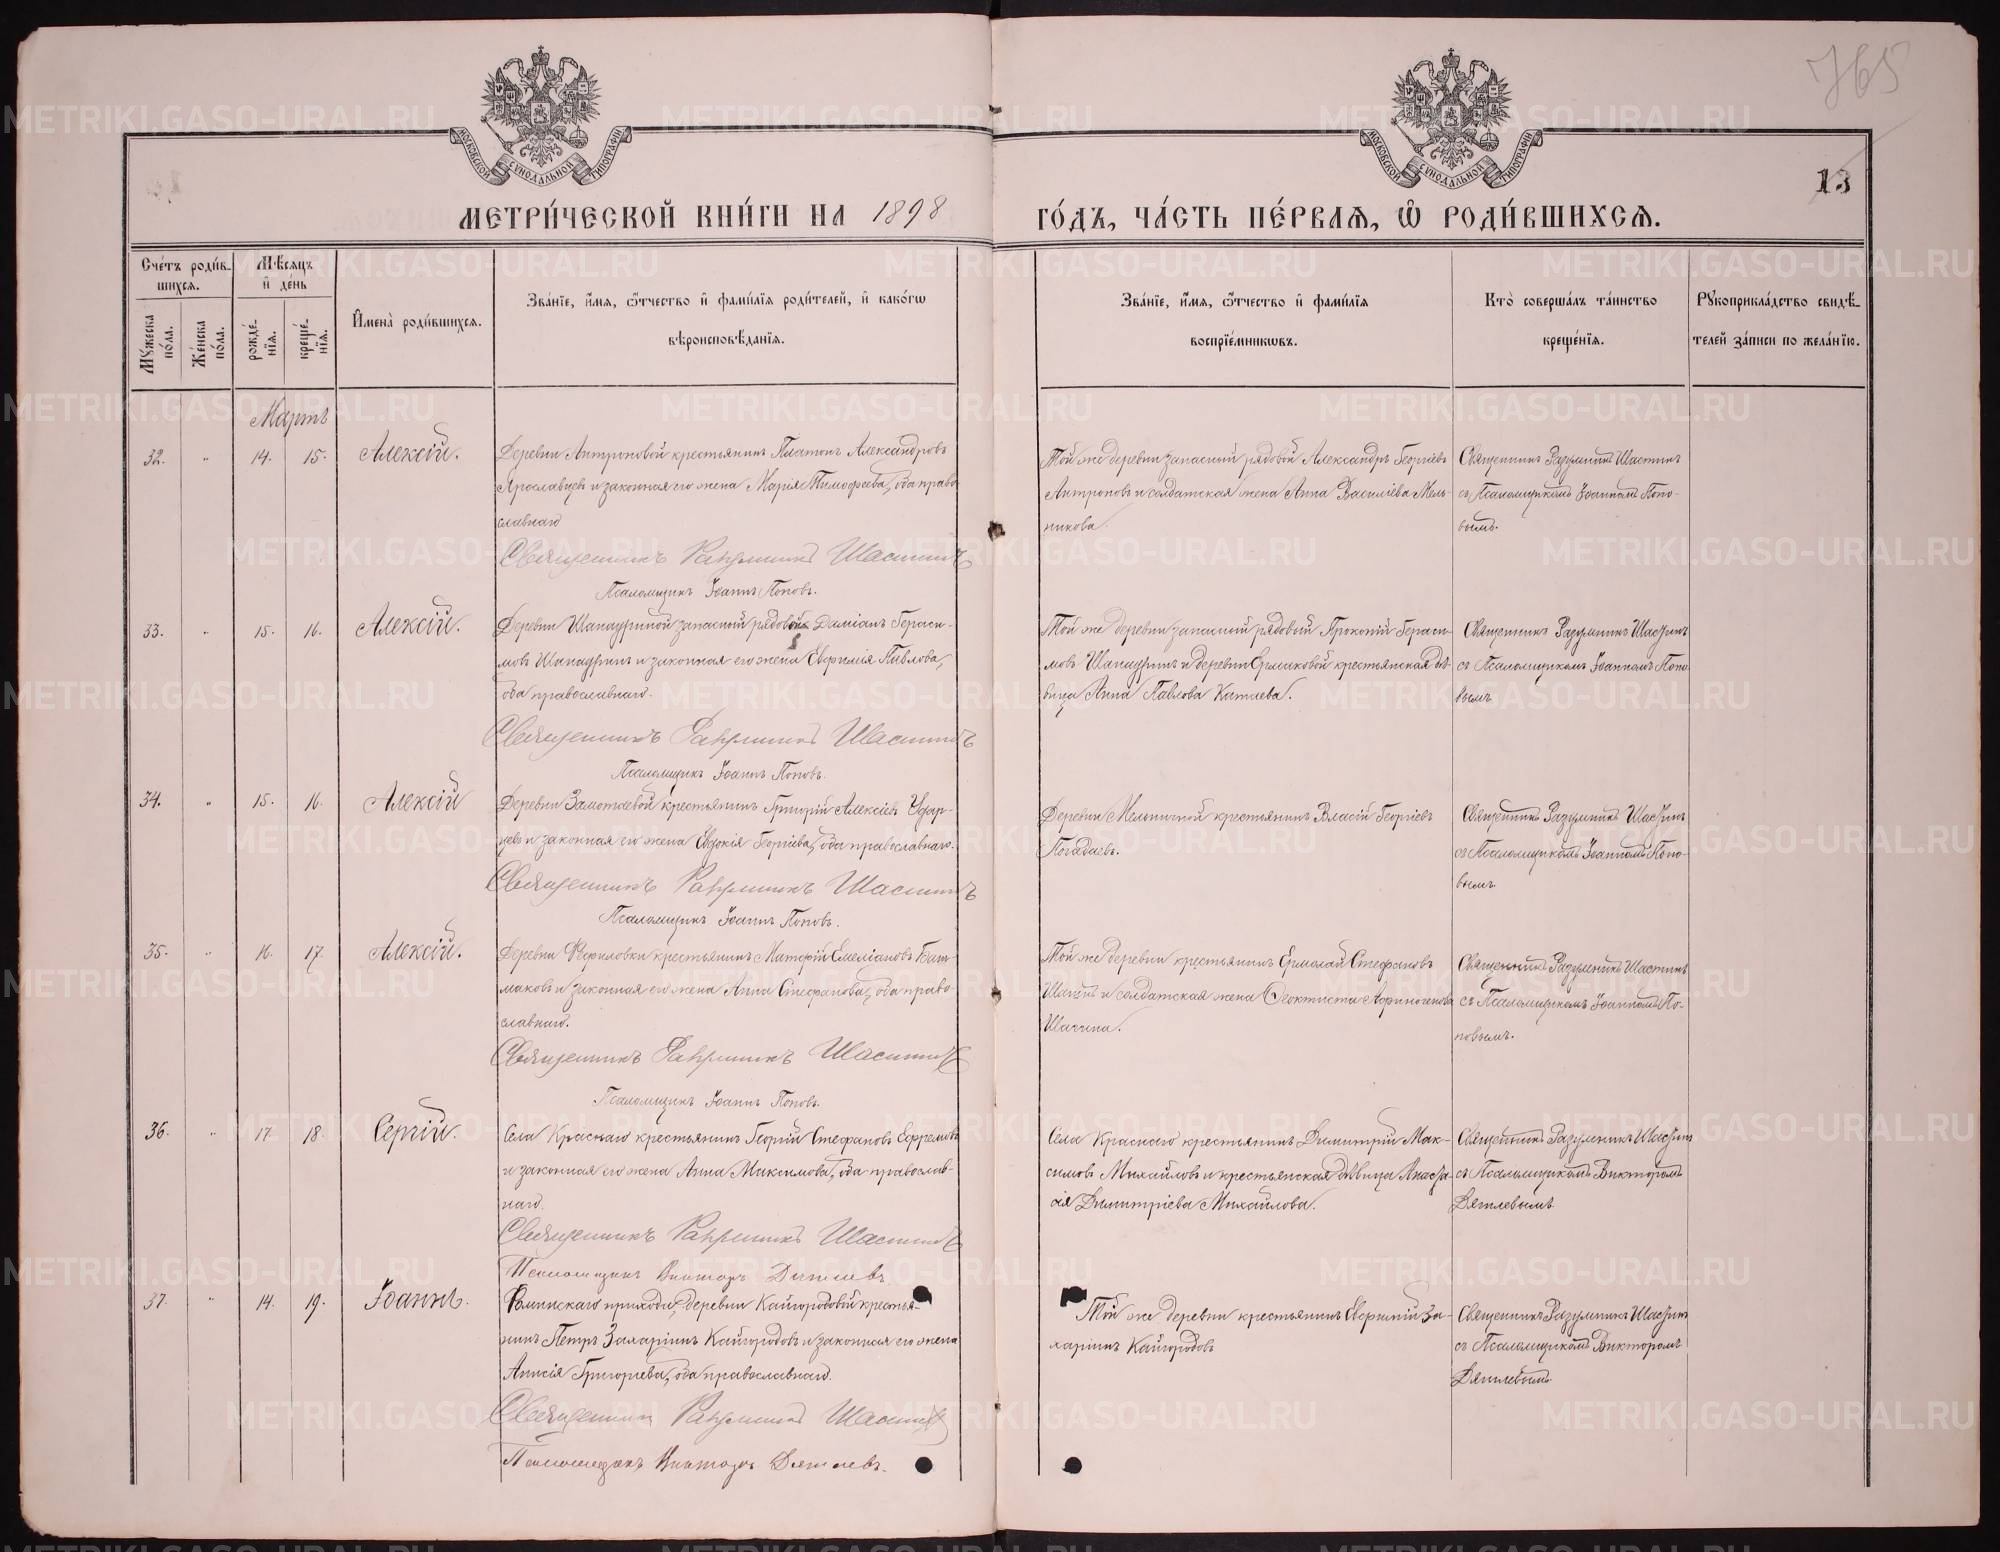 765
13
МОСКОВСКОЙ СѴНОДАЛЬНОЙ ТИПОГРАФІИ
МОСКОВСКОЙ СѴНОДАЛЬНОЙ ТИПОГРАФІИ
МЕТРИ́ЧЕСКОЙ КНИ́ГИ НА 1898 ГО́ДЪ, ЧА́СТЬ ПЕ́РВАѦ, Ѽ РОДИ́ВШИХСѦ.
Сче́тъ роди́вшихся.
Му́жеска по́ла.
Же́нска по́ла.
Мѣ́сяцъ и҆ де́нь
рожде́нїя.
креще́нїя.
И҆мена̀ роди́вшихся.
Зва́нїе, и҆́мя, ѻ҆́тчество и҆ фами́лїя роди́телей, и҆ како́гѡ
вѣроисповѣ́данїя.
Зва́нїе, и҆́мя, ѻ҆́тчество и҆ фами́лїя
воспрїе́мникѡвъ.
Кто̀ соверша́лъ та́инство
креще́нїя.
Рꙋкоприкла́дство свидѣ́-
телей за́писи по жела́нїю.
Мартъ
32. " 14. 15. Алексій.
Деревни Антроповой крестьянинъ Платонъ Александровъ
Ярославцевъ и законная его жена Марія Тимофеева, оба право
славнаго
Священникъ Разумникъ Шастинъ
Псаломщикъ Іоаннъ Поповъ.
Той же деревни запасный рядовой Александръ Георгіевъ
Антроповъ и солдатская жена Анна Василіева Мель-
никова.
Священникъ Разумникъ Шастинъ
съ Псаломщикомъ Іоанномъ Попо-
вымъ.
33. " 15. 16. Алексій.
Деревни Шапауриной запасной рядовой Даміанъ Гераси-
мовъ Шапауринъ и законная его жена Евфимія Павлова,
оба православнаго.
Священникъ Разумникъ Шастинъ
Псаломщикъ Іоаннъ Поповъ.
Той же деревни запасный рядовый Прокопій Гераси-
мовъ Шапауринъ и деревни Ермаковой крестьянская дѣ-
вица Анна Павлова Китаева.
Священникъ Разумникъ Шастинъ
съ Псаломщикомъ Іоанномъ Попо-
вымъ
34. " 15. 16. Алексій
Деревни крестьянинъ Григорій Алексіевъ Удар-
цевъ и законная его жена Евдокія Георгіева, оба православнаго.
Священникъ Разумникъ Шастинъ
Псаломщикъ Іоаннъ Поповъ.
Деревни Мельничной крестьянинъ Власій Георгіевъ
Погадаевъ.
Священникъ Разумникъ Шастинъ
съ Псаломщикомъ Іоанномъ Попо-
вымъ.
35. " 16. 17. Алексій.
Деревни крестьянинъ Матфій Емеліановъ Баш-
маковъ и законная его жена Анна Стефанова, оба право-
славнаго.
Священникъ Разумникъ Шастинъ
Псаломщикъ Іоаннъ Поповъ.
Той же деревни крестьянинъ Ермолай Стефановъ
и солдатская жена Феоктиста Афиногенова
Священникъ Разумникъ Шастинъ
съ Псаломщикомъ Іоанномъ По-
повымъ.
36. " 17. 18. Сергій.
Села Краснаго крестьянинъ Георгій Стефановъ Ефремовъ
и законная его жена Анна Максимова, оба православ-
наго.
Священникъ Разумникъ Шастинъ
Псаломщикъ Викторъ Дягилевъ.
Села Краснаго крестьянинъ Димитрій Мак-
симовъ Михайловъ и крестьянская дѣвица Анаста-
сія Димитріева Михайлова.
Священникъ Разумникъ Шастинъ
съ Псаломщикомъ Викторомъ
Дягилевымъ.
37. " 14. 19. Іоаннъ.
Фоминскаго прихода, деревни Кайгородовой крестья-
нинъ Петръ Захаріинъ Кайгородовъ и законная его жена
Анисія Григоріева, оба православнаго.
Священникъ Разумникъ Шастинъ
Псаломщикъ Викторъ Дягилевъ.
Той же деревни крестьянинъ Евфимій За-
харіинъ Кайгородовъ
Священникъ Разумникъ Шастинъ
съ Псаломщикомъ Викторомъ
Дягилевымъ.
METRIKI.GASO-URAL.RU